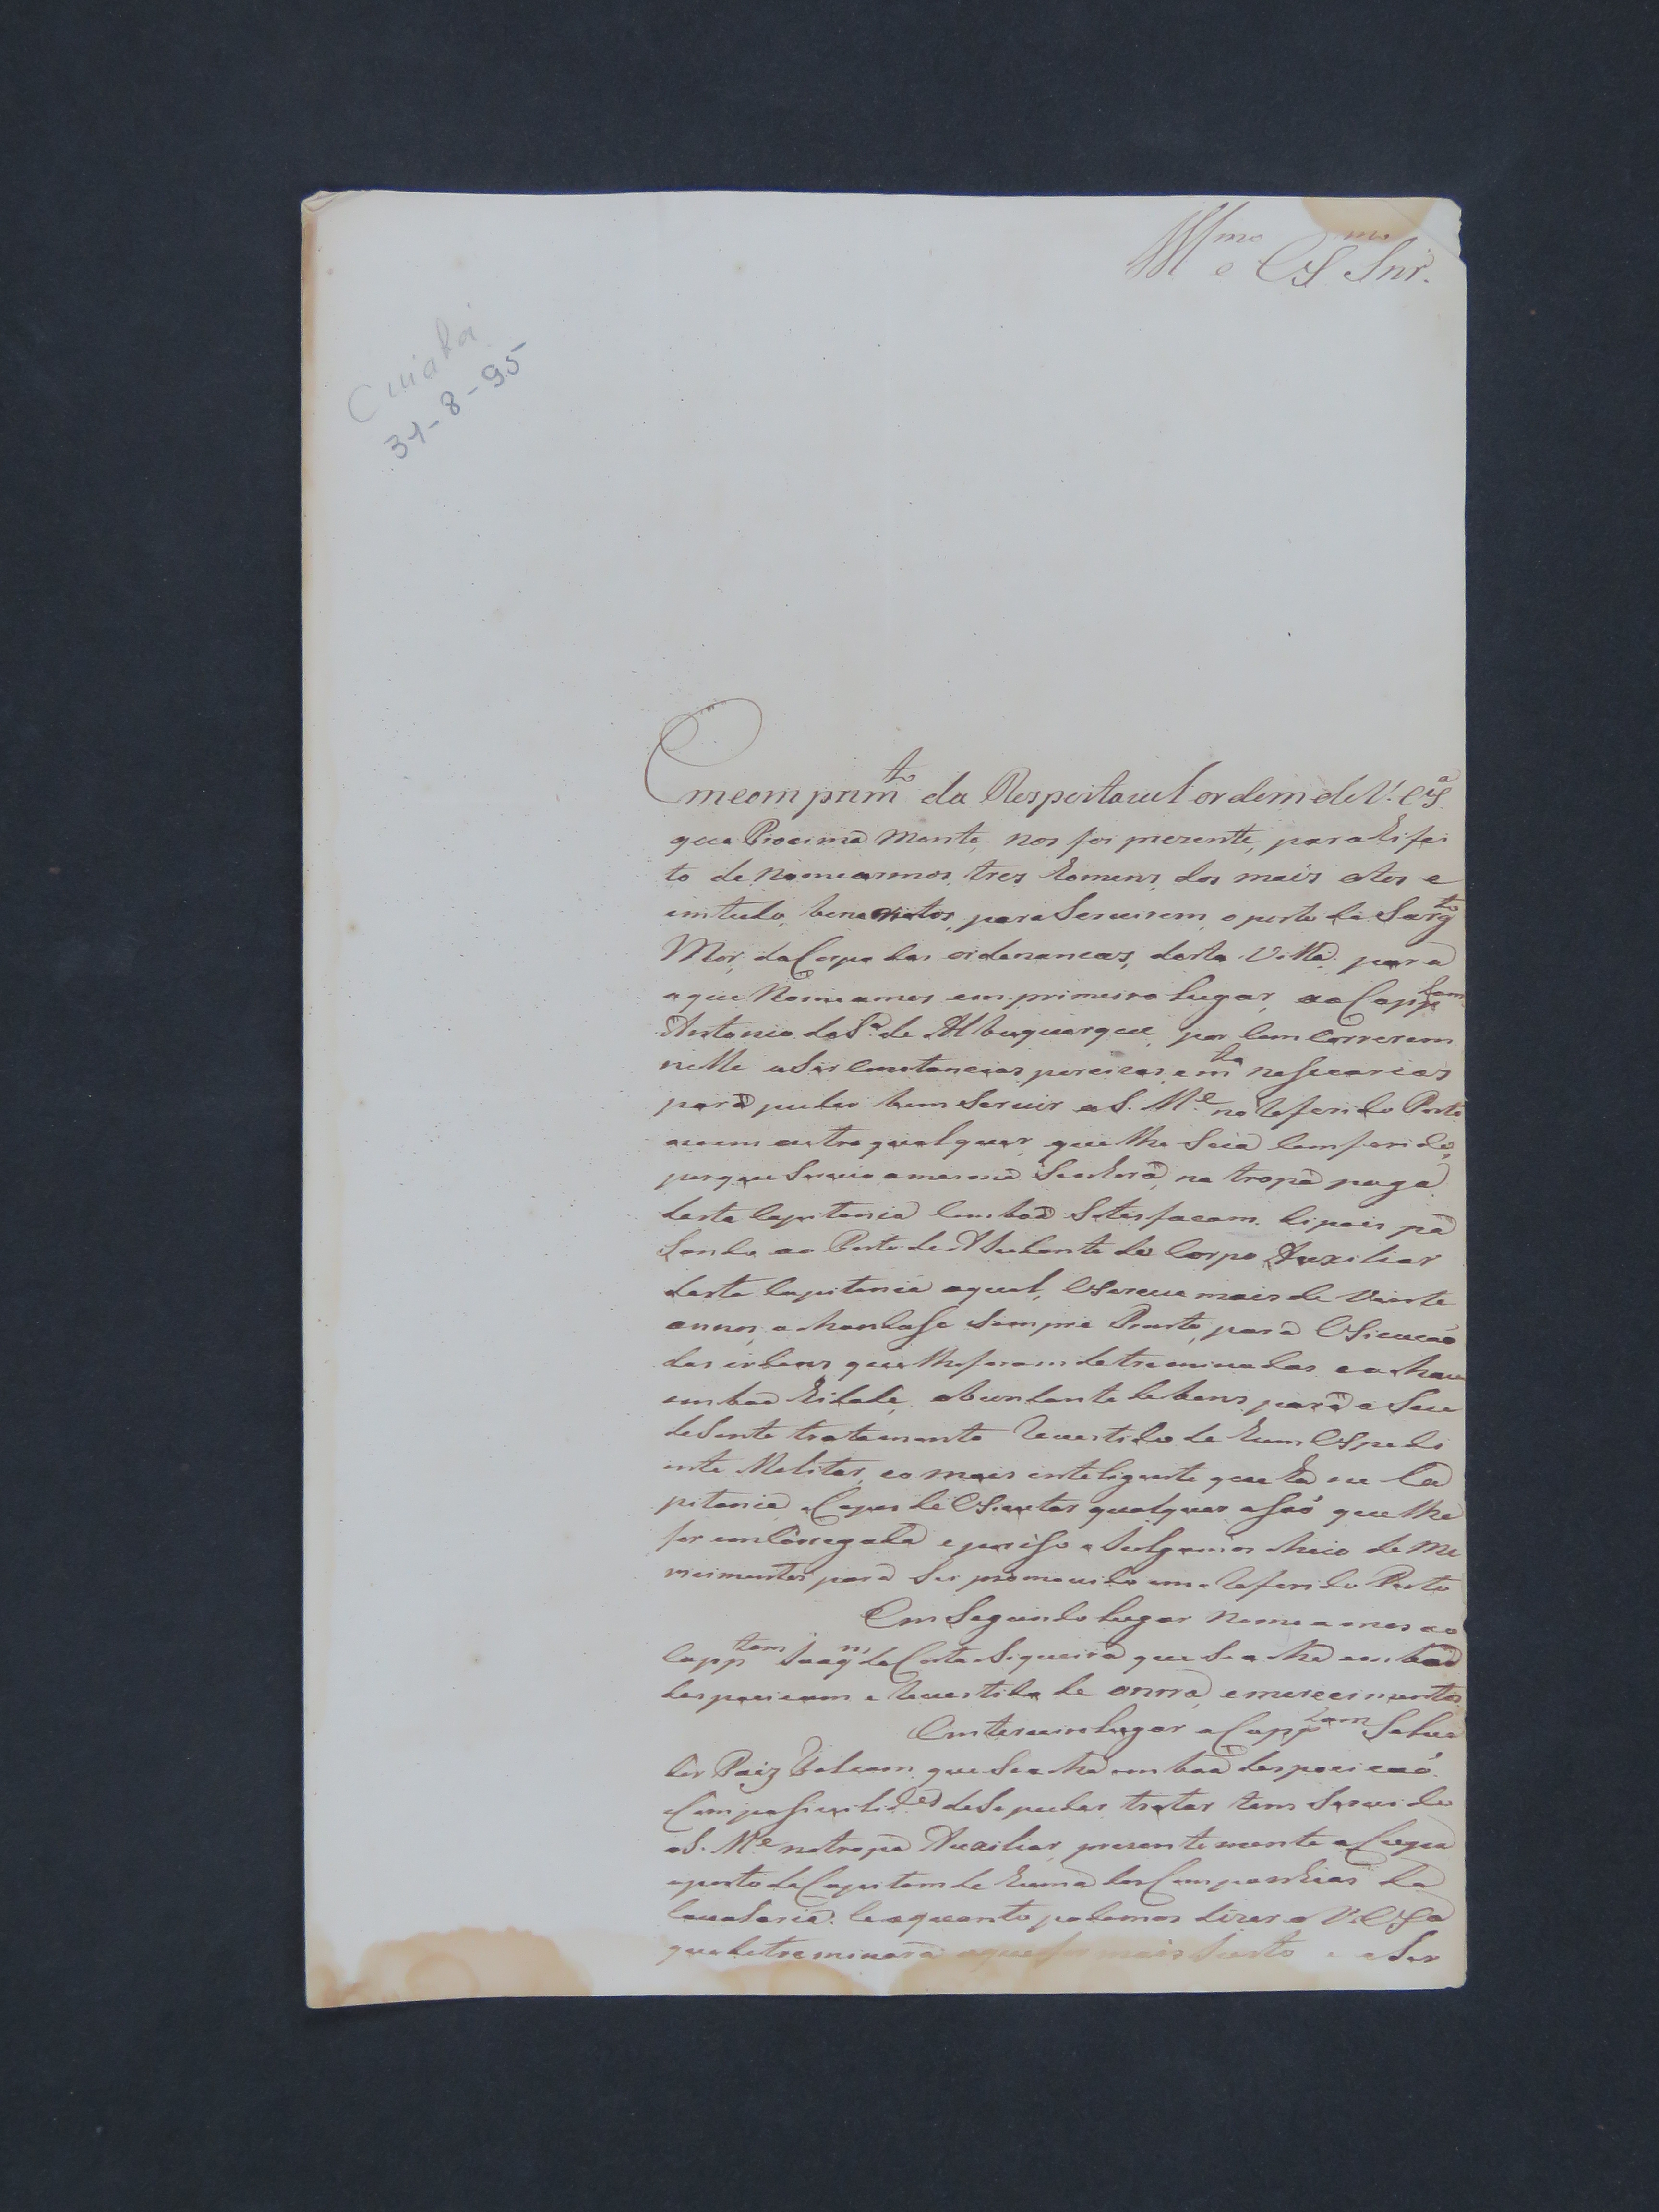 Illmo e Exmo Snr.
Cuiabá
31-8-95
Em comprim.to da Respeitavel ordem de V. Ex.a
que Procima mente, nos foi prezente, para Eifei
to de nomearmos, tres Eomens, dos mais atos e
em tudo, beneritos, para Servirem, o posto de Sarg.to
Mor, do Corpo das ordenancas, desta Villa, para
o que Nomeamos em primeiro lugar, ao Capp.tam
Antonio da S.a de Albuquerque, por Comcorrerem
nelle as Sircunstancias percizas, e m.to nesecarias
para puder bem Servir a S. M.e no Referido Posto
ou em outro qualquer, que lhe Seia Comferido,
porque Servio a mesma Senhora, na tropa paga
desta Capitania Com boa Satesfacam. dipois pa
Sando ao Posto de Aiudante do Corpo Auxiliar
desta Capitania aqual, Exserve mais de Vinte
annos, achandose Sempre Pronto, para Exicucaõ
das ordens que lhe foram detreminadas e a chase
em boa Eidade, abundante de bens, para o Seu
desente tratamento Revestido de Eum Expedi
ente Melitar, e o mais inteligente que Ea na Ca
pitania, Capas de Exsicutar qualquer asaõ que lhe
for emcarregada e por iso o Julgamos cheio de Me
recimentos para Ser promovido em o Referido Posto
Em Segundo lugar Nomeamos ao
Capp.tam Joaq.m da Costa Siqueira que Se acha em boa
despozicam e Revestido de onrra, e merecimentos
Em terceiro lugar o Capp.tam Salva
dor Paiz Falcam, que Se acha em boa despozicaõ
Com posivilid.es de Se puder tratar tem Servido
a S. M.e na tropa Auxiliar, prezentemente o Cupa
o posto de Capitam de Euma das Companhias da
Cavalaria. He o quanto podemos dizer a V. Exa
que detreminara o que for mais Justo e a Ser